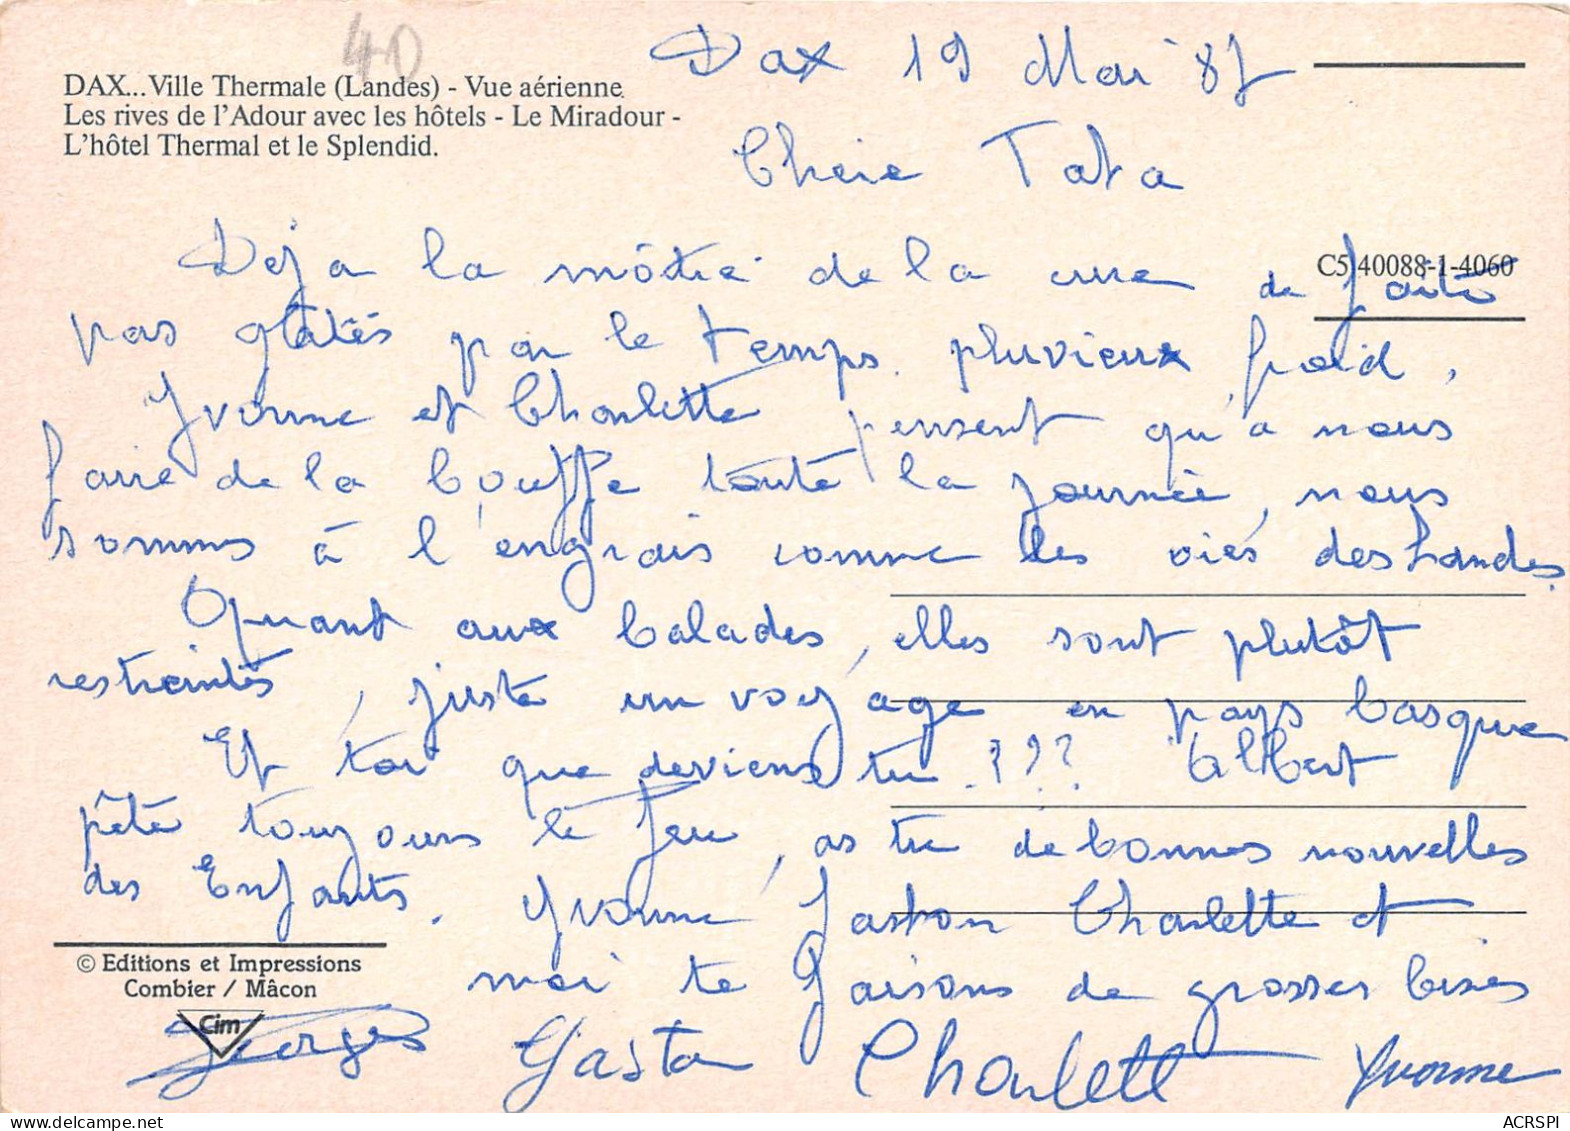 40
DAX...Ville Thermale (Landes) - Vue aérienne.
Les rives de l'Adour avec les hôtels - Le Miradour -
L'hôtel Thermal et le Splendid.
Dax 19 Mai 87
Chere Tata
C5 40088-1-4060
Deja la môitié de la cure de faite
pas gâtés par le temps. pluvieux froid,
Yvonne et Charlette pensent qu'a nous
faire de la bouffe toute la journée, nous
sommes à l'engrais comme les oies des Landes.
Quant aux balades, elles sont plutôt
restreintes, juste un voyage en pays basque
Et toi que deviens tu ??? Albert
pête toujours le feu, as tu de bonnes nouvelles
des Enfants. Yvonne Gaston Charlette et
moi te faisons de grosses bises
© Editions et Impressions
Combier / Mâcon
Cim
Georges Gaston Charlett Yvonne
ACRSPI